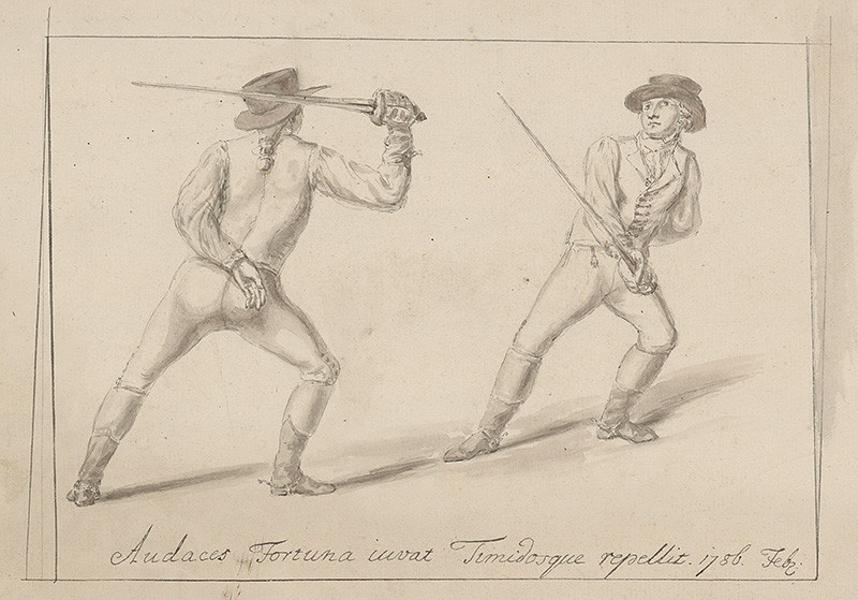 Audaces Fortuna iuvat Timidosque repellit. 1786. Feb: